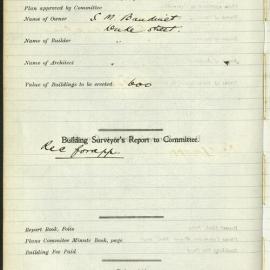 Plan approved by Committee
Name of Owner S. M. Baudinet
Duke Street.
Name of Builder "
Name of Architect "
Value of Buildings to be erected 600
Building Surveyor's Report to Committee.
Rec for app.
Report Book, Folio
Plans Committee Minute Book, page
Building Fee Paid